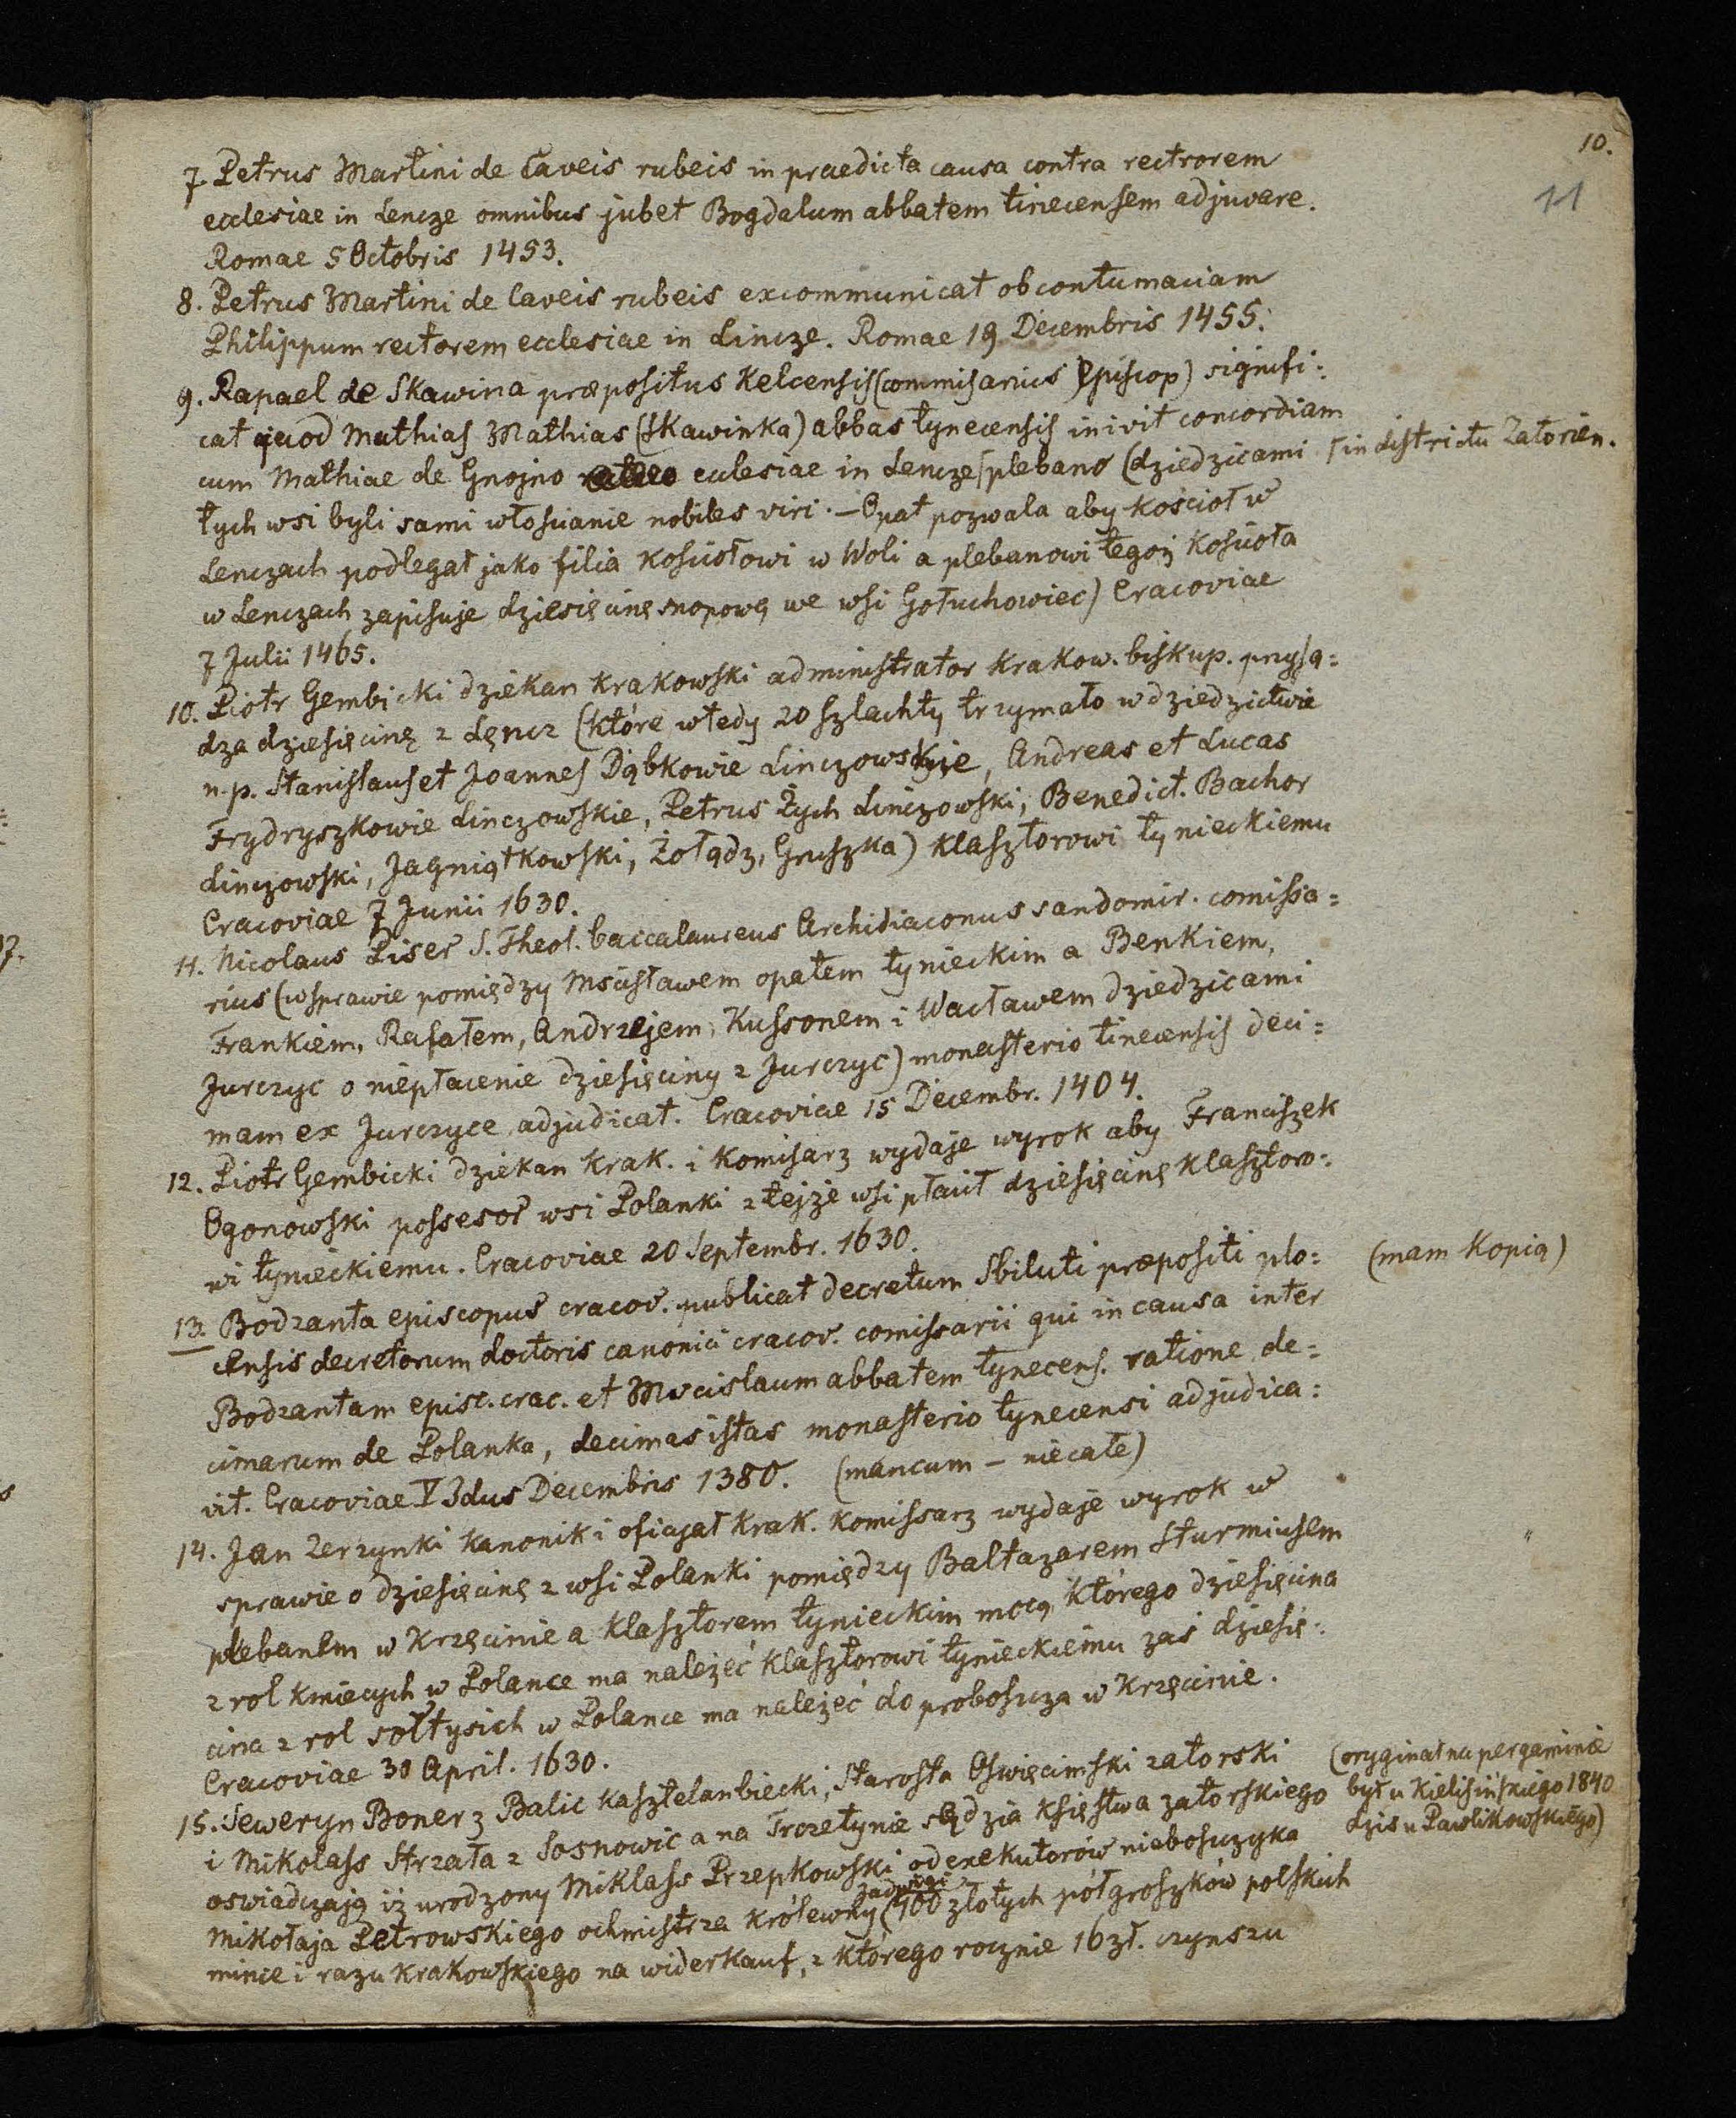 10.
11
7. Petrus Martini de Caveis rubeis in praedicta causa contra rectrorem
ecclesiae in Lencze omnibus jubet Bogdalum abbatem tinecensem adjuvare.
Romae 5 Octobris 1453.
8. Petrus Martini de Caveis rubeis excommunicat ob contumaciam
Philippum rectorem ecclesiae in Lincze. Romae 19 Decembris 1455.
9. Rapael de Skawina præpositus Kelcensis (commisarius Episcop) signifi:
cat quod Mathias Mathias (Skawinka) abbas tynecensis inivit concordiam
cum Mathiae de Gnojno ecclesiae in Lencze ⌈ plebano (dziedzicami ⌈ in districtu Zatorien.
tych wsi byli sami włościanie nobiles viri. – Opat pozwala aby kościoł w
Lenczach podlegał jako filia kościołowi w Woli a plebanowi tegoż kościoła
w Lenczach zapisuje dziesięcinę snopową we wsi Gołuchowiec) Cracoviae
7 Julii 1465.
10. Piotr Gembicki dziekan krakowski administrator krakow. biskup. przysą:
dza dziesięcinę z Lęncz (które wtedy 20 szlachty trzymało w dziedzictwie
n.p. Stanislaus et Joannes Dąbkowie Linczowskie, Andreas et Lucas
Frydryszkowie Linczowskie, Petrus Żych Linczowski, Benedict. Bachor
Linczowski, Jagniątkowski, Żołądz, Gruszka) klasztorowi tynieckiemu
Cracoviae 7 Junii 1630.
11. Nicolaus Piser S. Theol. baccalaureus Archidiaconus sandomir. comissa:
rius (w sprawie pomiędzy Mścisławem opatem tynieckim a Benkiem,
Frankiem, Rafałem, Andrzejem, Kussonem i Wacławem dziedzicami
Jurczyc o niepłacenie dziesięciny z Jurczyc) monasterio tinecensis deci:
mam ex Jurczyce adjudicat. Cracoviae 15 Decembr. 1404.
12. Piotr Gembicki dziekan krak. i komisarz wydaje wyrok aby Franciszek
Ogonowski possesor wsi Polanki z tejże wsi płacił dziesięcinę klasztoro:
wi tynieckiemu. Cracoviae 20 Septembr. 1630.
13. Bodzanta episcopus cracov. publicat decretum Sbiluti præpositi plo: (mam kopią)
censis decretorum doctoris canonici cracov. comissarii qui in causa inter
Bodzantam episc. crac. et Mscislaum abbatem tynecens. ratione de:
cimarum de Polanka, decimas istas monasterio tynecensi adjudica:
vit. Cracoviae V Idus Decembris 1380. (mancum – niecałe)
14. Jan Zerzynki kanonik i oficjał krak. komissarz wydaje wyrok w
sprawie o dziesięcinę z wsi Polanki pomiędzy Baltazarem Sturmiusem
plebanem w Krzęcinie a klasztorem tynieckim mocą którego dziesięcina
z rol kmiecych w Polance ma należeć klasztorowi tynieckiemu zaś dziesię:
cina z rol sołtysich w Polance ma należeć do proboszcza w Krzęcinie.
Cracoviae 30 April. 1630.
15. Seweryn Boner z Balic kasztelan biecki, starosta Oswięcimski zatorski (oryginał na pergaminie
i Mikolass Strzała z Sosnowic a na Trczetynie sędzia księstwa zatorskiego był u Kielisińskiego 1840
oswiadczają iż urodzony Miklass Przepkowski od exekutorów nieboszczyka dzis u Pawlikowskiego)
Jadwigi
Mikołaja Petrowskiego ochmistrza królewny (400 złotych półgroszków polskich
mince i razu krakowskiego na widerkauf, z którego rocznie 16 zł. czynszu